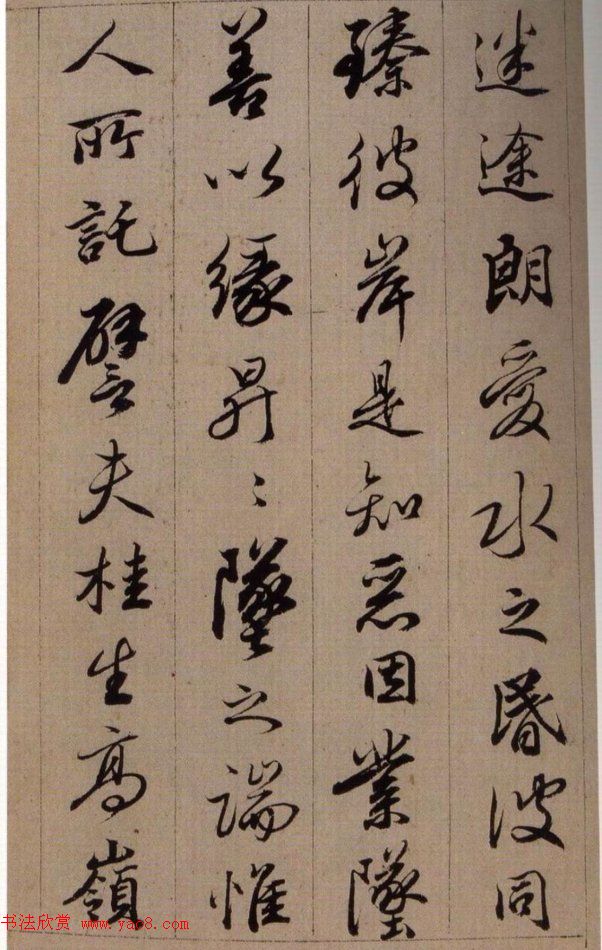 迷途朗愛水之昬波同
臻彼岸是知惡因業墜
善以緣昇〻墜之端惟
人所託譬夫桂生高嶺
书法欣赏 www.yac8.com